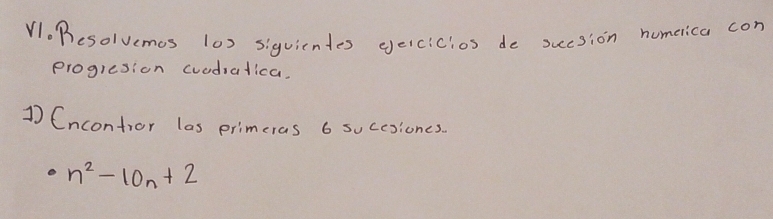 VI. Resolvemos los siguientes ejercicios de succsión numerica con
progresion cuadratica.
1) Encontrar las primeras 6 sucesiones.
• n² - 10n + 2